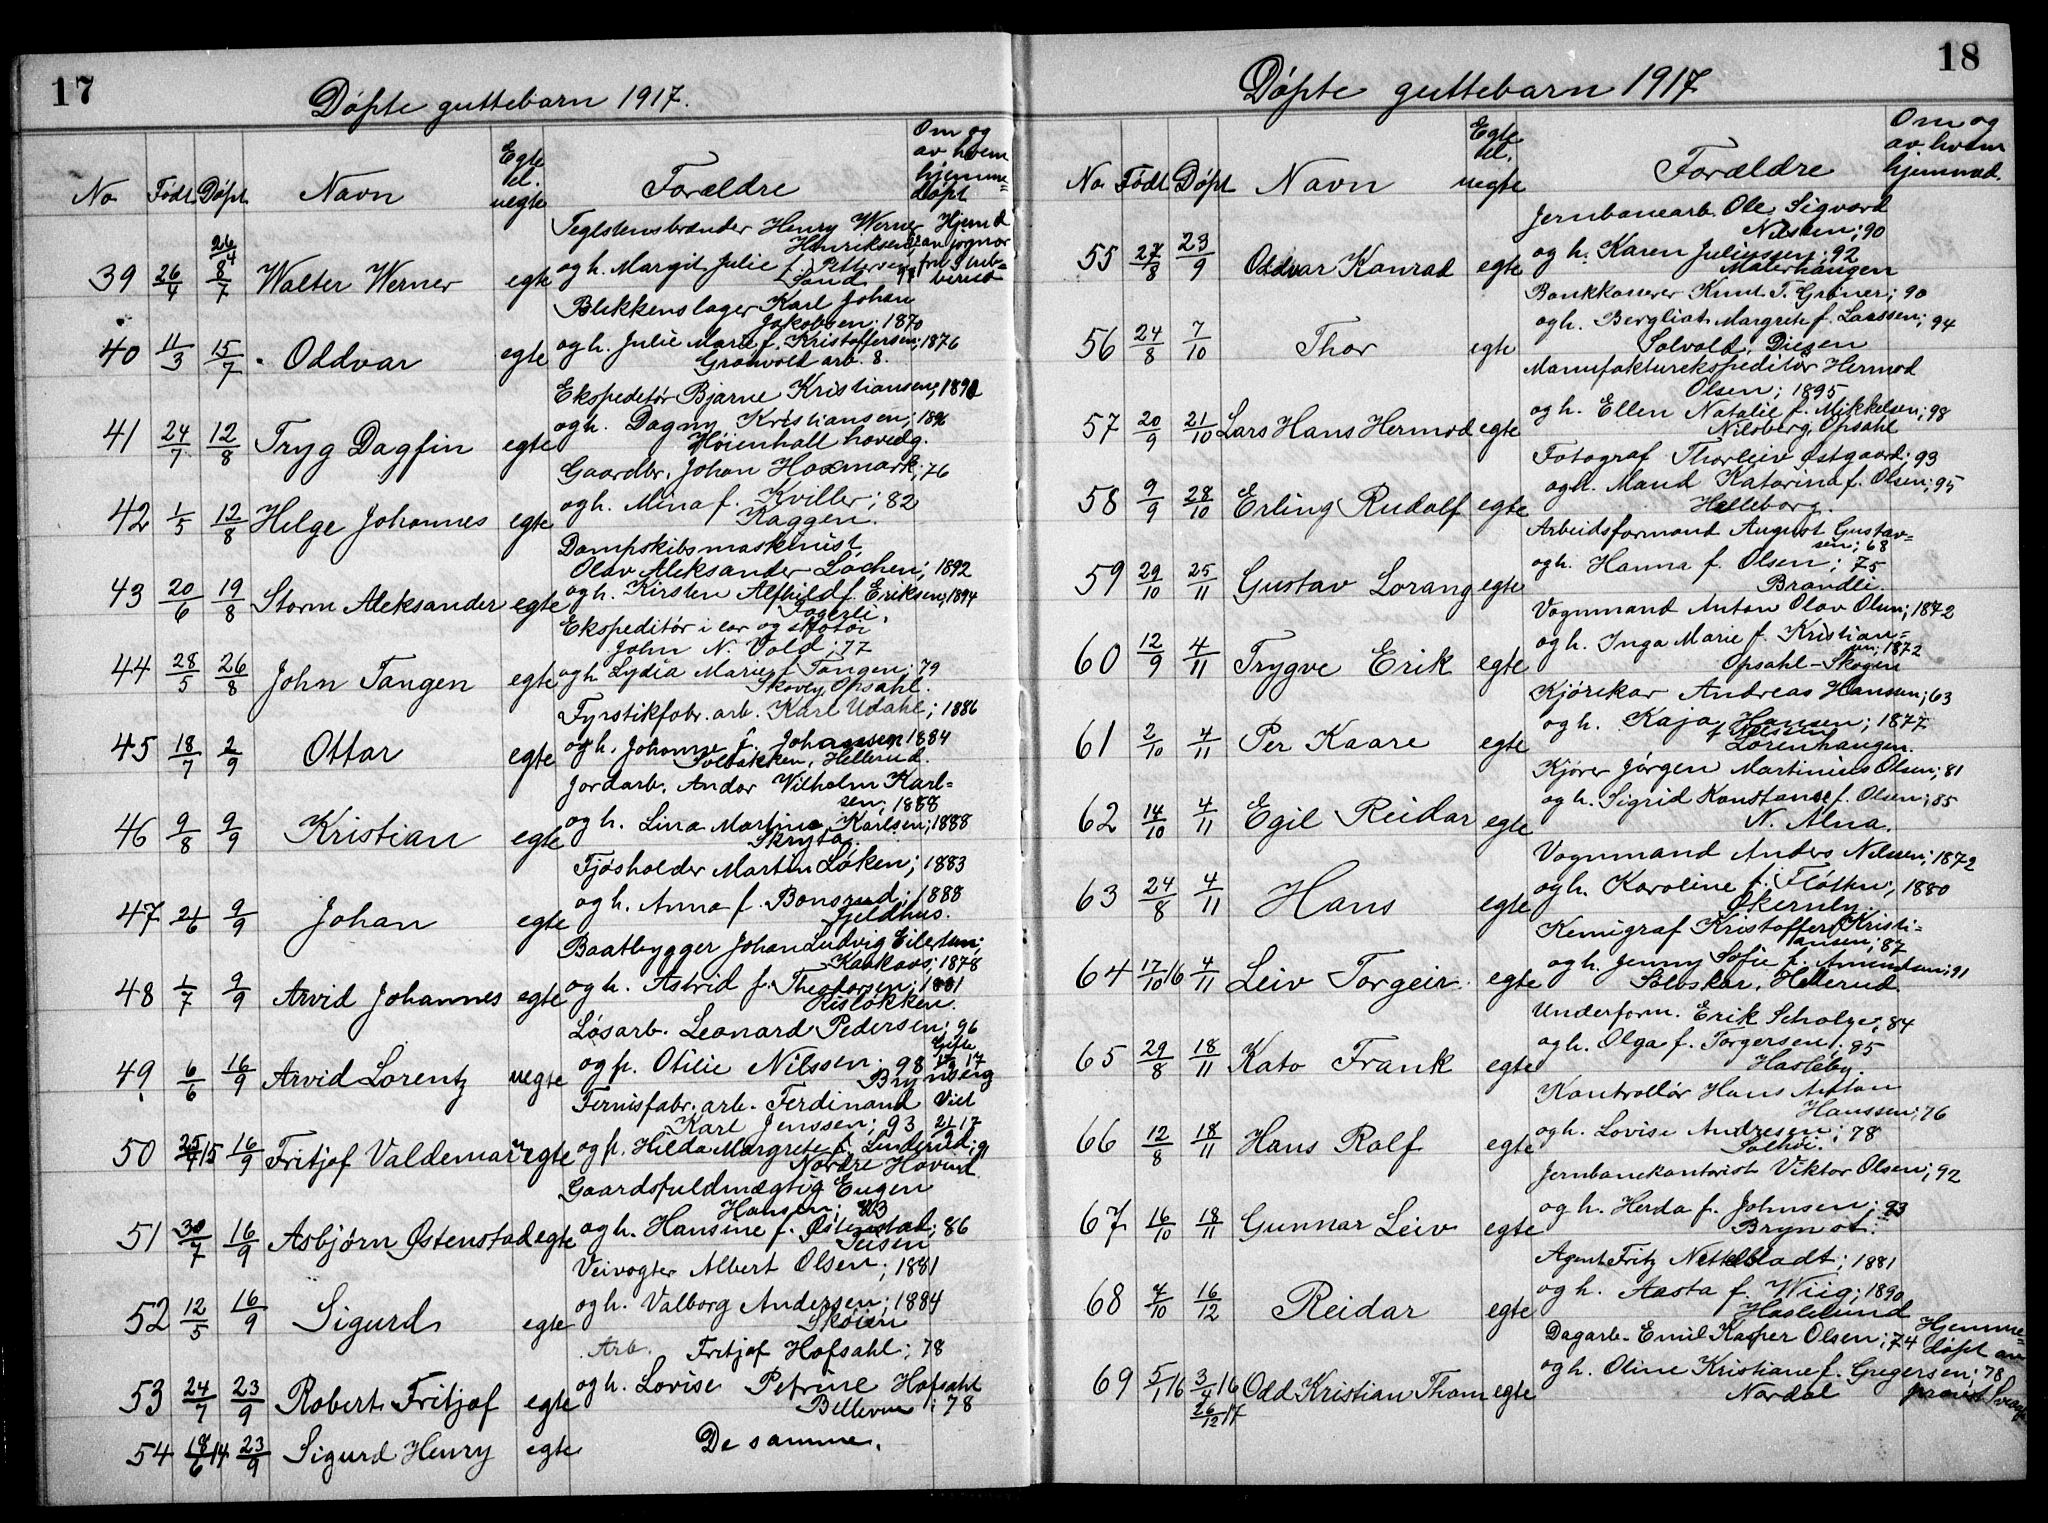 17
Døpte guttebarn 1917.
No Født Døpt Navn Egte el. uegte Forældre Om og av hvem hjemme=døpt
Teglstensbrænder Henry Werner Hjemd.
Henriksen
39 26/4 26/4 8/7 Walter Werner egte og h. Margit Julie f. Pettersen
Blikkenslager Karl Johan
Jakobsen; 1870
40 11/3 15/7 Oddvar egte og h. Julie Marie f. Kristoffersen; 1876
Grønvold arb. 8.
Ekspeditør Bjarne Kristiansen; 1890
41 24/7 12/8 Tryg Dagfin egte og h. Dagny Kristiansen; 1896
Høienhall hovedg.
Gaardbr. Johan Hoxmark; 76
42 1/5 12/8 Helge Johannes egte og h. Mina f. Kviller; 82
Kaggen.
Dampskibsmaskinist
Olav Aleksander Lochen; 1892
43 20/6 19/8 Storm Aleksander egte og h. Kirsten Alfhild f. Eriksen; 1894
Fagerli.
Ekspeditør i lær og skotøi
John N. Vold, 77
44 28/5 26/8 John Tangen egte og h. Lydia Marie f. Tangen; 79
Skovly, Opsahl.
Fyrstikfabr. arb. Karl Udahl; 1886
45 18/7 2/9 Ottar egte og h. Johanne f. Johanssen 1884
Solbakken, Hellerud.
Jordarb. Andor Vilhelm Karl=
sen; 1888
46 9/8 9/9 Kristian egte og h. Lina Martine Karlsen; 1888
Skryta.
Fjøsholder Martin Løken; 1883
47 21/6 9/9 Johan egte og h. Anna f. Bonsrud; 1888
Fjeldhus.
Baatbygger Johan Ludvig Eilertsen
1878
48 1/7 9/9 Arvid Johannes egte og h. Astrid f. Theodorsen; 1881
Risløkken.
Løsarb. Leonard Pedersen; 96
Gifte
49 6/6 16/9 Arvid Lorentz uegte og p. Otilie Nilssen; 98
Brynsberg
Fernisfabr. arb. Ferdinand Viet
Karl Jenssen; 93
50 15 16/9 Fritjof Valdemar uegte og p. Hilda Margrete f. Linderud; 91
Nordre Hovind.
Gaardsfuldmægtig Eugen
Hansen; 83
51 30/7 16/9 Asbjørn Østenstad egte og h. Hansine f. Østenstad; 86
Teisen
Veivogter Albert Olsen; 1881
52 12/5 16/9 Sigurd egte og h. Valborg Andersen; 1884
Skøien
Arb. Fritjof Hofsahl; 78
53 24/7 23/9 Robert Fritjof egte og h. Lovise Petrine Hofsahl
Bellevue; 78
54 18/6 14 23/9 Sigurd Henry egte De samme.
18
Døpte guttebarn 1917
No Født Døpt Navn Egte el. uegte Forældre Om og av hvem hjemmed.
Jernbanearb. Ole Sigvard
Nilsen; 90
55 27/8 23/9 Oddvar Konrad egte og h. Karen Juliussen; 92
Malerhaugen
Bankkasserer Knut T. Grøner; 90
56 24/8 7/10 Thor egte og h. Bergliot Margrete f. Larssen; 94
Solvold, Disen
Manufakturekspeditør Hermod
Olsen; 1895
57 20/9 21/10 Lars Hans Hermod egte og h. Ellen Natalie f. Mikkelsen; 98
Nilsberg, Opsahl
Fotograf Thorleiv Østgaard; 93
58 9/9 28/10 Erling Rudolf egte og h. Maud Katarina f. Olsen; 95
Helleborg.
Arbeidsformand August Gustav=
sen; 68
59 29/10 25/11 Gustav Lorang egte og h. Hanna f. Olsen; 75
Brandli
Vognmand Anton Olav Olsen; 1872
60 12/9 4/11 Trygve Erik egte og h. Inga Marie f. Kristian=
sen; 1872
Opsahl-Skogen
Kjørekar Andreas Hansen; 63
61 2/10 4/11 Per Kaare egte og h. Kaja Hansen; 1877
f. Nilsen
Lørenhaugen.
Kjører Jørgen Martinius Olsen; 81
62 14/10 4/11 Egil Reidar egte og h. Sigrid Konstanse f. Olsen; 85
N. Alna.
Vognmand Anders Nilsen; 1872
63 24/8 4/11 Hans egte og h. Karoline f. Fløthn; 1880
Økernly.
Kemigraf Kristoffer Kristi=
ansen; 87
64 17/10 16 4/11 Leiv Torgeir egte og h. Jenny Sofie f. Amundsen; 91
Solbskar, Hellerud.
Underform. Erik Scholze; 84
65 29/8 18/11 Kato Frank egte og h. Olga f. Torgersen; 85
Hasleby.
Kontrollør Hans Anton
Hanssen; 76
66 12/8 18/11 Hans Rolf egte og h. Lovise Andresen; 78
Solhøi.
Jernbanekontorist Viktor Olsen; 92
67 16/10 18/11 Gunnar Leiv egte og h. Herda f. Johnsen; 93
Bryn st.
Agent Fritz Nettelbladt; 1881
68 7/10 16/12 Reidar egte og h. Aasta f. Wiig; 1890
Haslelund
Dagarb. Emil Kasper Olsen; 74 Hjemme=
døpt av
69 5/1 16 3/4 16 Odd Kristian Thom egte og h. Oline Kristiane f. Gregersen; 78
26/12 17 Nordal